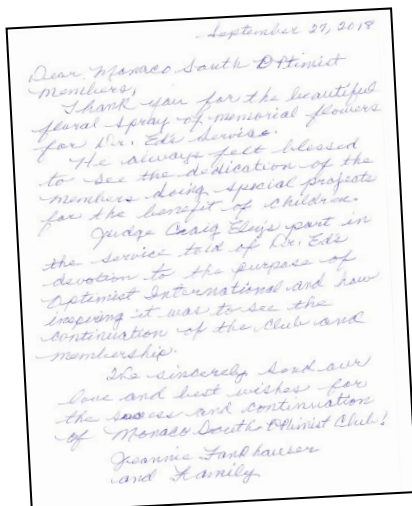 September 27, 2018
Dear Monaco South Optimist
Members,
Thank you for the beautiful
floral spray of memorial flowers
for Dr. Ed's Service.
He always felt blessed
to see the dedication of the
members doing special projects
for the benefit of children.
Judge Craig Eley's part in
the service told of Dr. Ed's
devotion to the purpose of
Optimist International and how
inspiring it was to see the
continuation of the Club and
membership.
We sincerely send our
love and best wishes for
the success and continuation
of Monaco South Optimist Club!
Jeannie Fankhauser
and Family